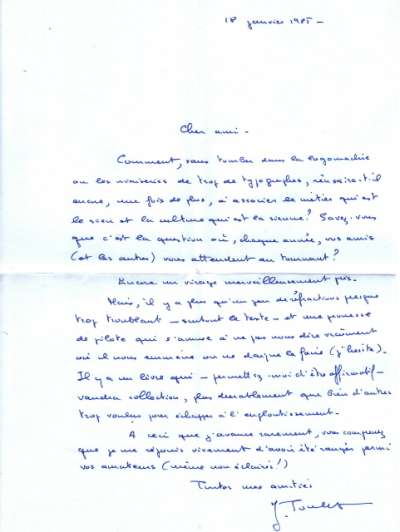 18 janvier 1985 -
Cher ami -
Comment, sans tomber dans la logomachie
ou les niaiseries de trop de typographes, réussira-t-il
encore, une fois de plus, à associer le métier qui est
le sien et la culture qui est la sienne ? Savez-vous
que c'est la question où, chaque année, vos amis
(et les autres) vous attendent au tournant ?
Encore un virage merveilleusement pris.
Mais, il y a plus qu'un jeu de réfractions presque
trop troublant - surtout le texte - et une prouesse
de pilote qui s'amuse à ne pas nous dire vraiment
où il nous emmène ou ne daigne le faire (j'hésite).
Il y a un livre qui - permettez-moi d'être affirmatif -
vaudra collection, plus durablement que bien d'autres
trop voulus pour échapper à l'engloutissement.
A ceci que j'avance rarement, vous comprenez
que je me réjouis vivement d'avoir été rangé parmi
vos amateurs (même non éclairés !)
Toutes mes amitiés